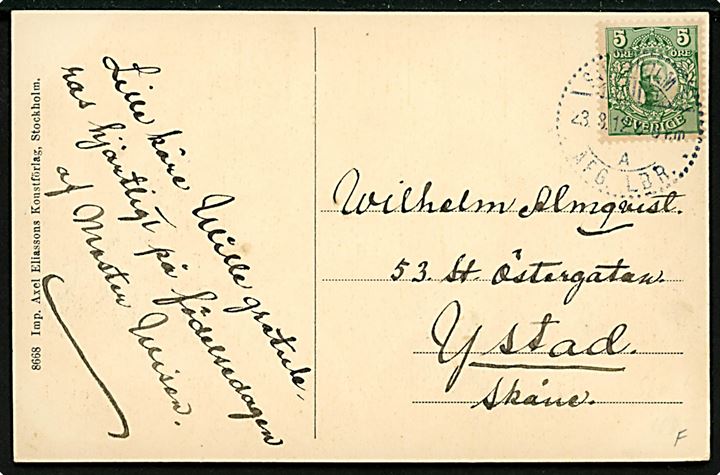 8668 Imp. Axel Eliassons Konstförlag, Stockholm.
Lille käre Wille gratule-
ras hjärtligt på födelsedagen
af Moster Louise.
5 5
ÖRE ÖRE
SVERIGE
23. 8. 12
A
AFG. LBR.
Wilhelm Almqvist.
53. St Östergatan.
Ystad.
Skåne.
F